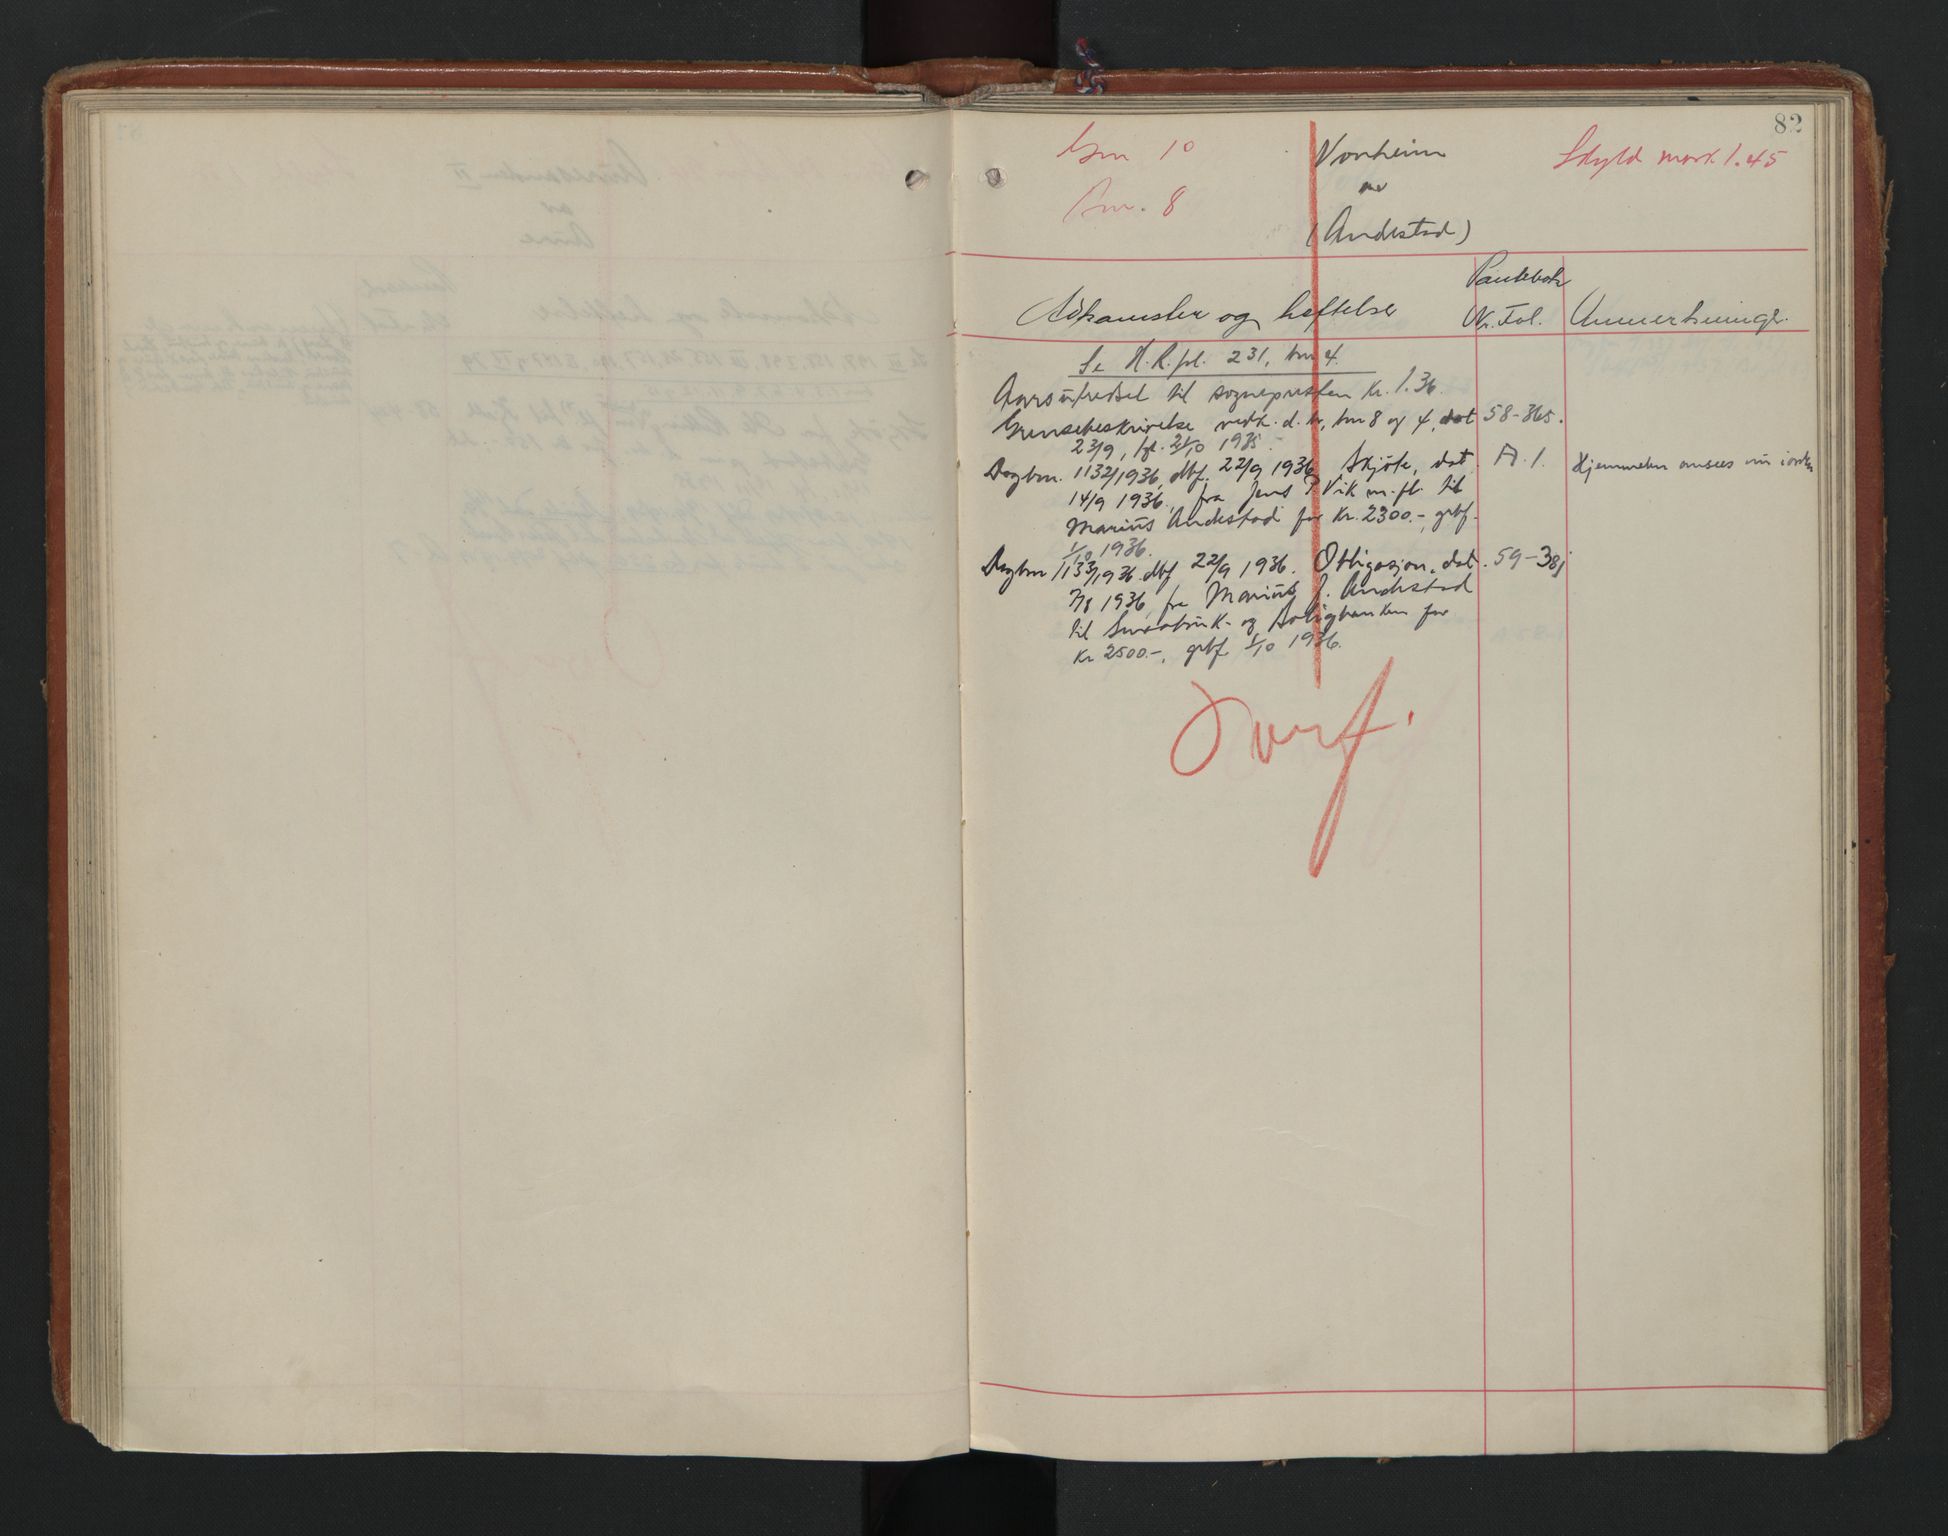 82
Gnr 10 Vonheim Skyld mark 1.45
Bnr. 8 av
(Andestad)
Pantebok
Adkomster og heftelser Nr. Fol. Anmerkninger
Se H.R.pl. 231, bnr 4.
Aarsutredsel til sognepresten Kr. 1.36.
Grensebeskrivelse vedk. d. br, bnr 8 og 4, dat 58-365.
23/9, 1935.
Dagbnr. 1132/1936, dbf. 22/9 1936. Skjøte, dat. A.1. Hjemmelen ansees nu i orden
14/9 1936, fra Jens P Vik m.fl. til
Marius Andestad for Kr. 2300.-, grbf.
1/10 1936.
Dagbnr 1133/1936 dbf 22/9 1936. Obligasjon, dat. 59-381
7/8 1936, fra Marius J. Andestad
til Småbruk- og Boligbanken for
Kr 2500.-, grbf. 1/10 1936.
Overf.